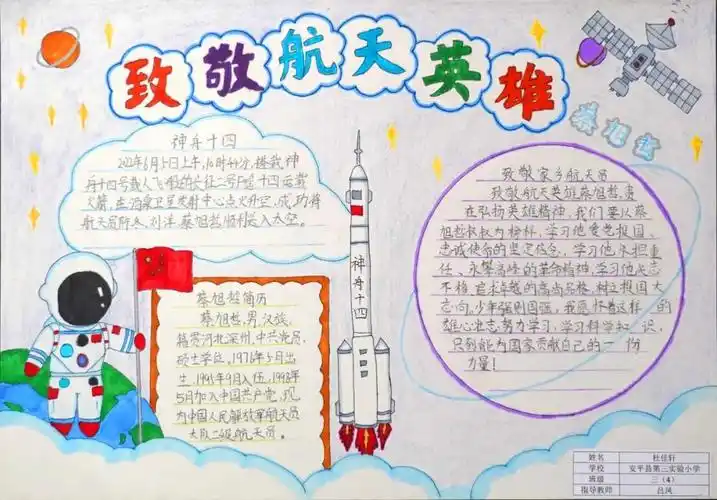 致敬航天英雄
蔡旭哲
神舟十四
2022年6月5日上午,10时44分,搭载神
舟十四号载人飞船的长征二号F遥十四运载
火箭,在酒泉卫星发射中心点火升空,成功将
航天员陈冬、刘洋、蔡旭哲顺利送入太空。
蔡旭哲简历
蔡旭哲,男,汉族,
籍贯河北深州,中共党员,
硕士学位,1976年5月出
生,1995年9月入伍,1998年
5月加入中国共产党,现
为中国人民解放军航天员
大队二级航天员。
神舟十四
致敬家乡航天员
致敬航天英雄蔡旭哲,贵
在弘扬英雄精神,我们要以蔡
旭哲叔叔为榜样,学习他爱党报国、
忠诚使命的坚定信念,学习他承担重
任、永攀高峰的革命精神,学习他矢志
不移、追求卓越的高尚品格,树立报国大
志向。少年强则国强,我愿怀着这样的
雄心壮志,努力学习,学习科学知识,
只到能为国家贡献自己的一份
力量!
姓名 杜佳轩
学校 安平县第三实验小学
班级 三(4)
指导教师 吕凤